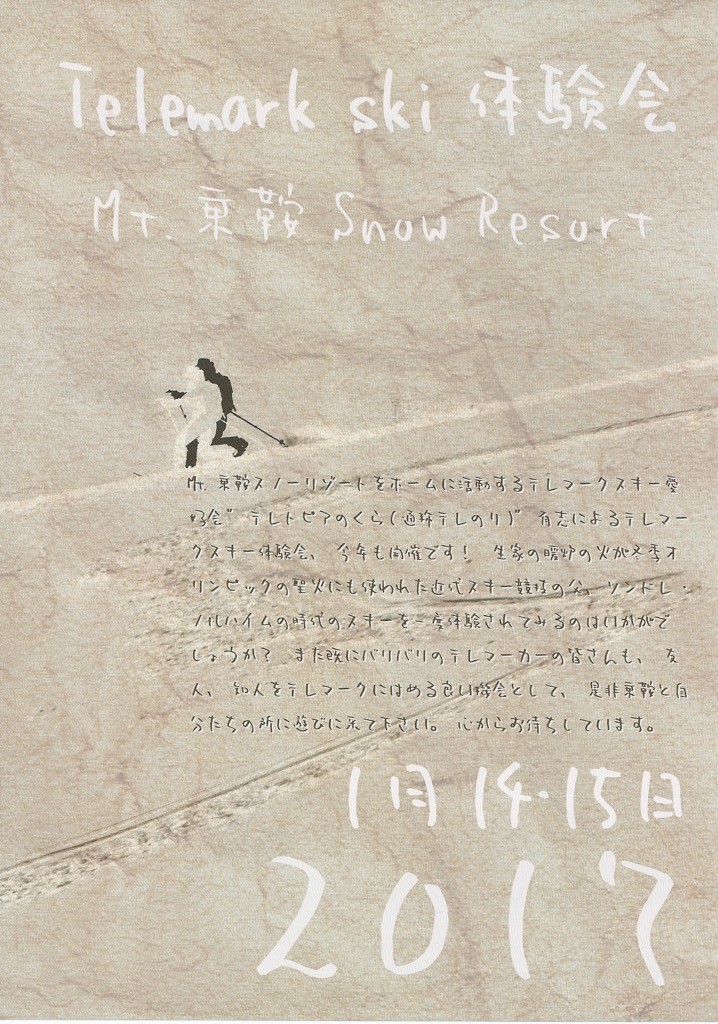 Telemark ski 体験会
Mt. 乗鞍 Snow Resort
Mt. 乗鞍スノーリゾートをホームに活動するテレマークスキー愛
好会"テレトピアのくら(通称テレのり)"有志によるテレマー
クスキー体験会、今年も開催です! 生家の暖炉の火が冬季オ
リンピックの聖火にも使われた近代スキー競技の父、ソンドレ・
ノルハイムの時代のスキーを一度体験されてみるのはいかがで
しょうか? また既にバリバリのテレマーカーの皆さんも、友
人、知人をテレマークにはめる良い機会として、是非乗鞍と自
分たちの所に遊びに来て下さい。心からお待ちしています。
1月14・15日
2017